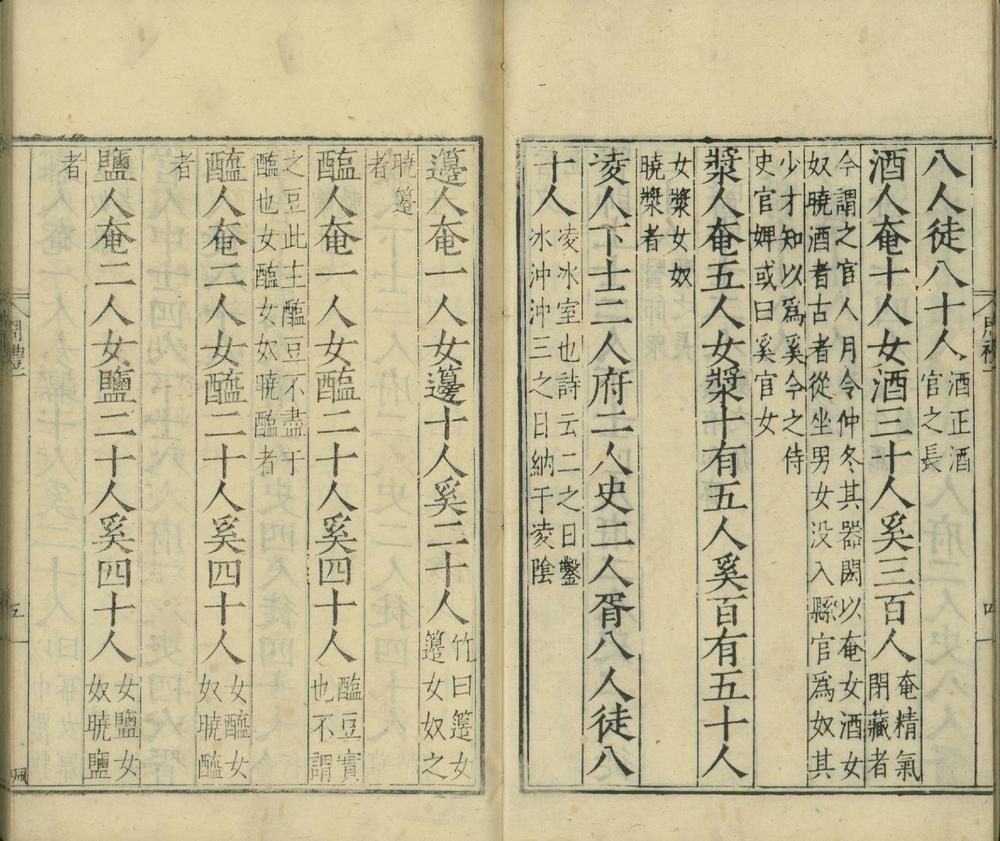 八人徒八十人
酒正酒
官之長
酒人奄十人女酒三十人奚三百人
奄精氣
閉藏者
今謂之官人月令仲冬其器閎以奄女酒女
奴曉酒者古者從坐男女没入縣官爲奴其
少才知以爲奚今之侍
史官婢或曰奚官女
漿人奄五人女漿十有五人奚百有五十人
女漿女奴
曉漿者
凌人下士二人府二人史二人胥八人徒八
十人
凌冰室也詩云二之日鑿
冰沖沖三之日納于凌陰
籩人奄一人女籩十人奚二十人
竹曰籩女
籩女奴之
曉籩
者
醢人奄一人女醢二十人奚四十人
醢豆實
也不謂
之豆此主醢豆不盡于
醢也女醢女奴曉醢者
醯人奄二人女醯二十人奚四十人
女醯女
奴曉醯
者
鹽人奄二人女鹽二十人奚四十人
女鹽女
奴曉鹽
者
周禮一
五